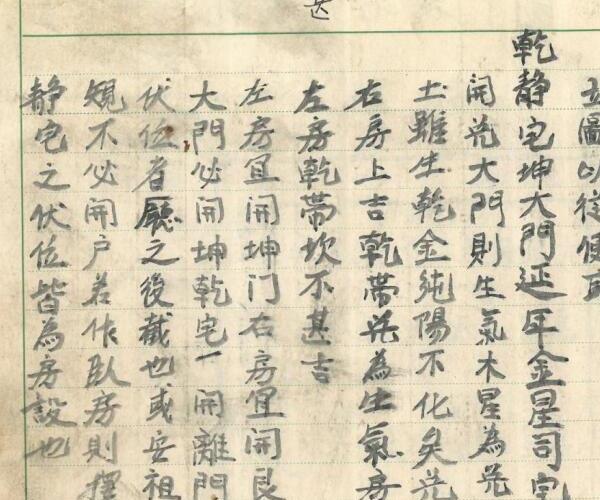 乾靜宅坤大門延年金星司宅
開兌大門則生氣木星為兌
土雖生乾金純陽不化矣兌
右房上吉乾帶兌為生氣房
左房乾帶坎不甚吉
左房宜開坤门右房宜開艮
大門必開坤乾宅一開離門
伏位者廳之後截也或安祖
不必開户若作臥房則擇
靜宅之伏位皆為房設也